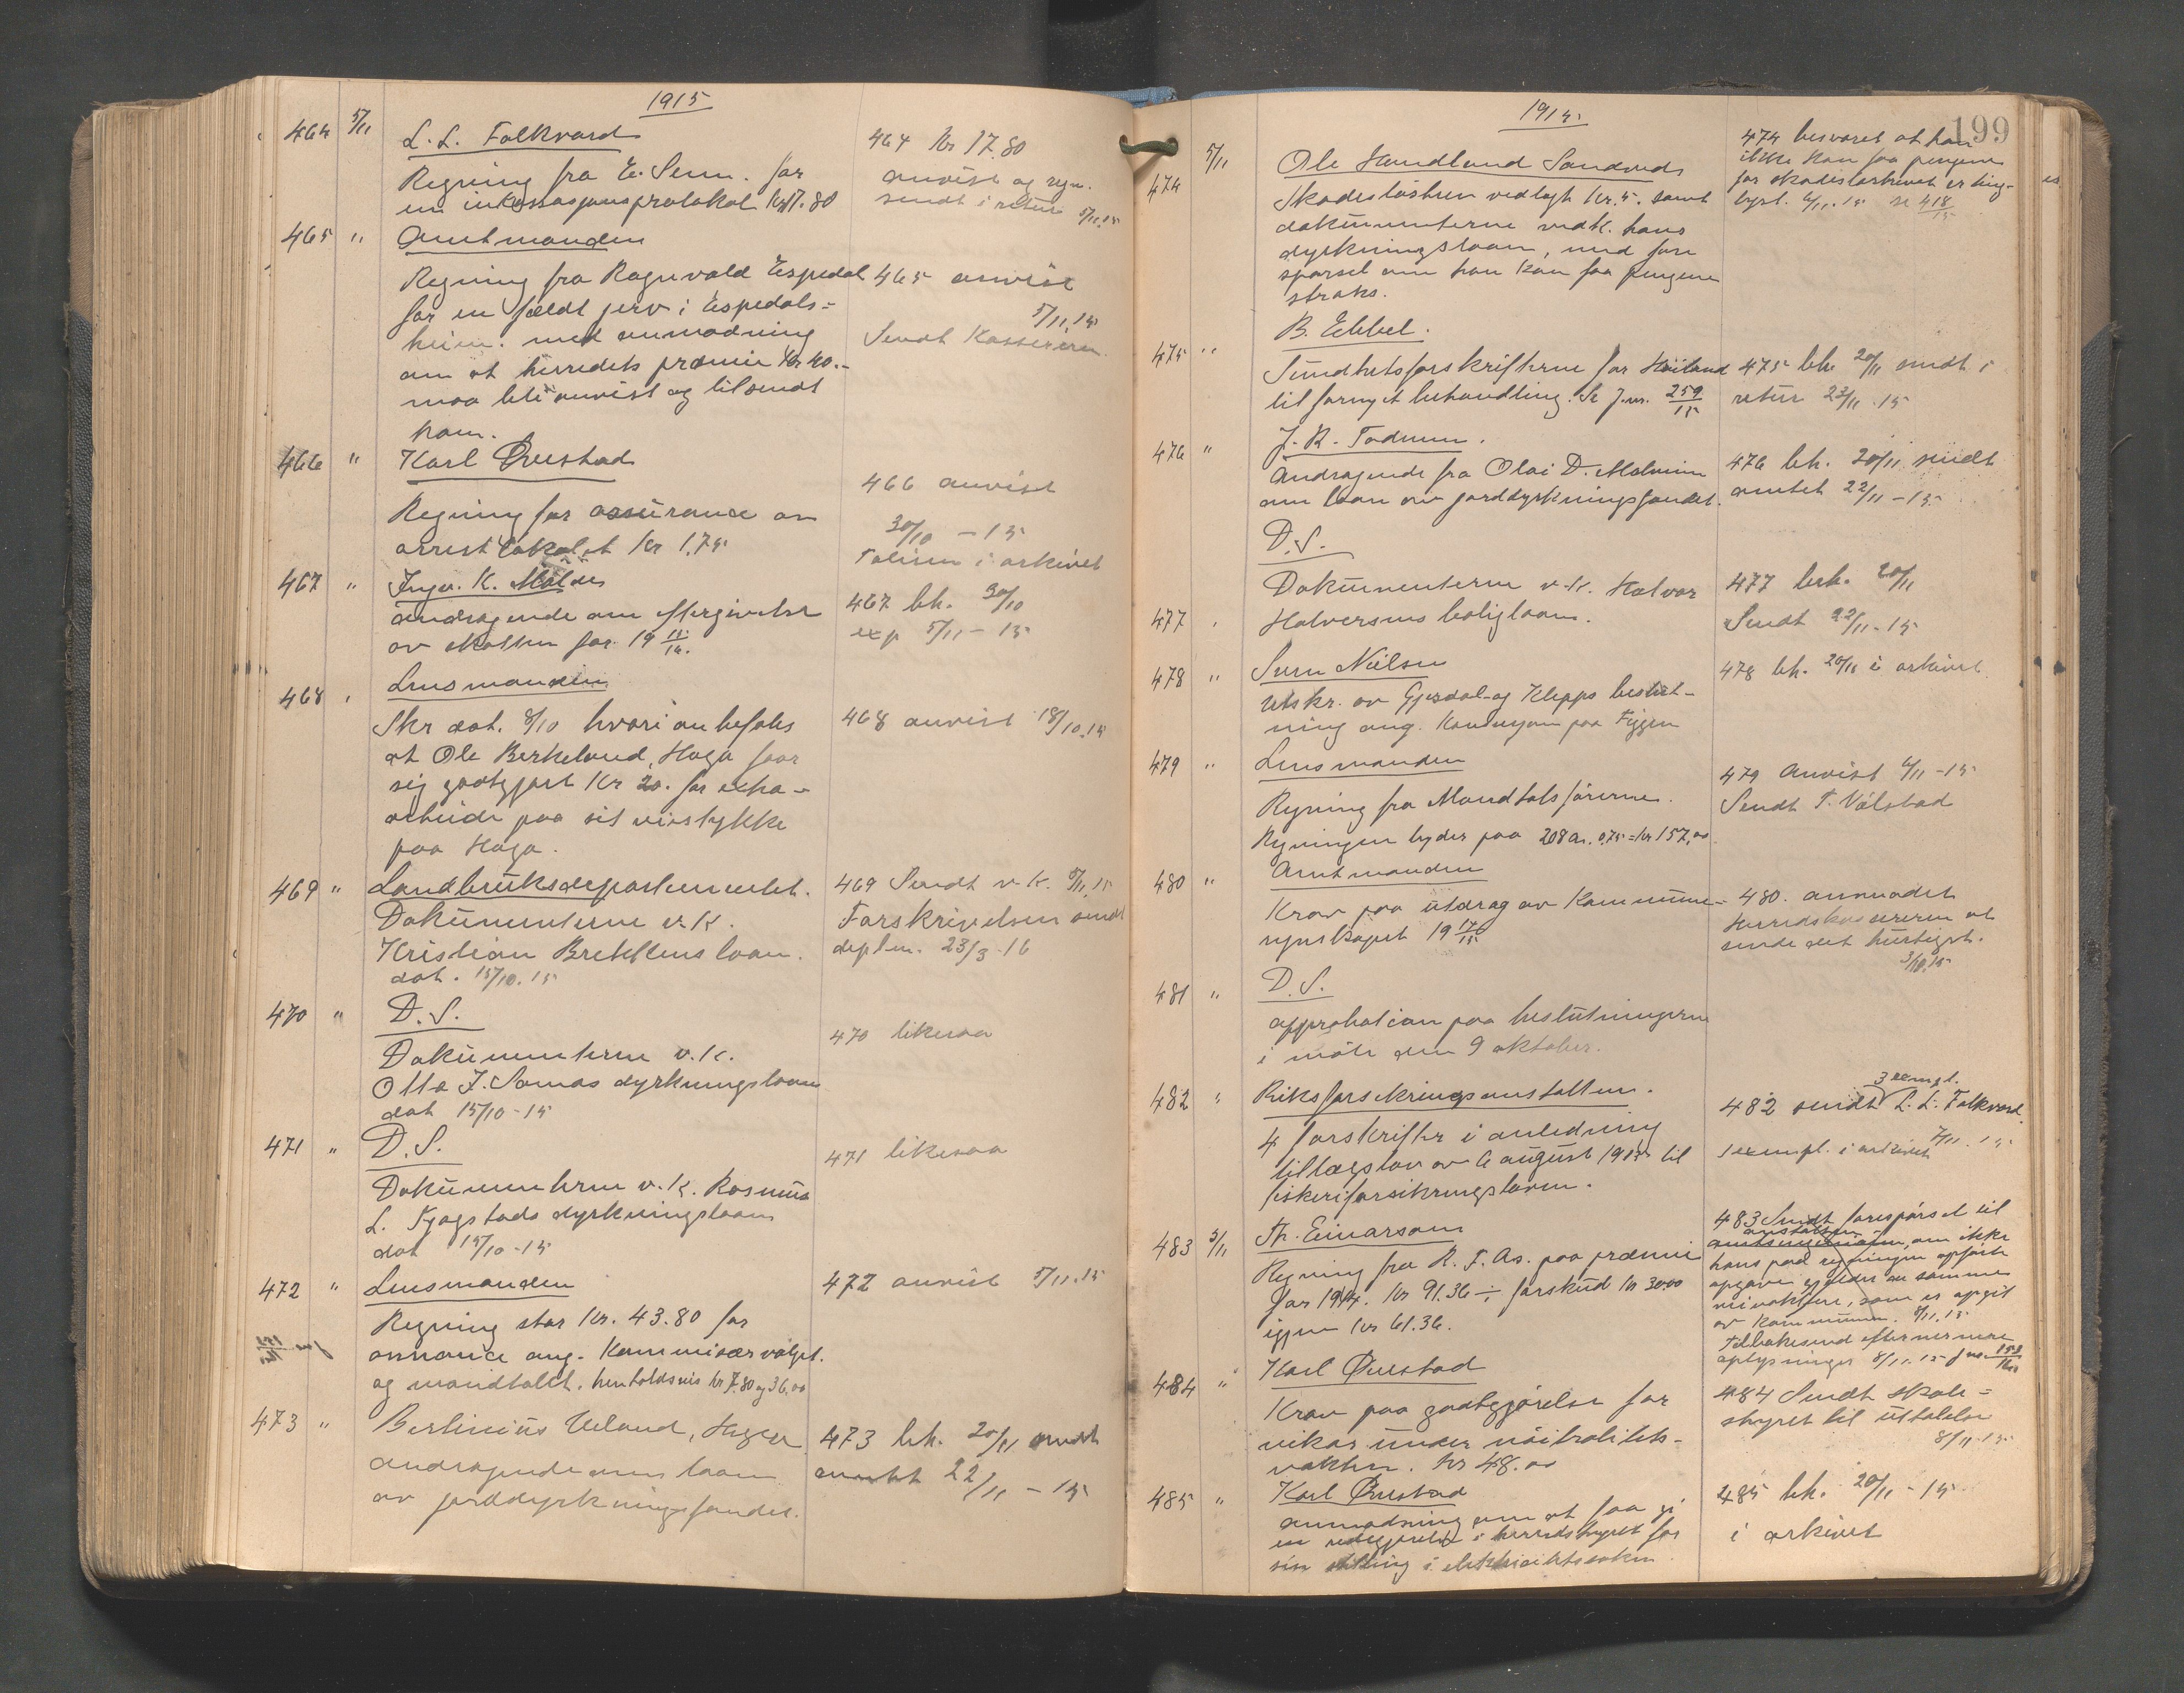 1915
464 5/11 L. L. Folkvord 464 Kr 17.80
Regning fra E. Senn. for anvist og regn.
en inkassasjonsprotokol Kr 17.80 sendt i retur 5/11.15
465 " Amtmanden
Regning fra Ragnvald Espedal 465 anvist
for en fældt jerv i Espedals- 5/11.15
heien. med anmodning Sendt Kassereren.
om at herredets præmie Kr 40.-
maa bli anvist og tilsendt
ham.
466 " Karl Ørestad 466 anvist
Regning for assurance av 30/10 - 15
arrestlokalet Kr 1.75 Polisen i arkivet
467 " K. 467 bh. 30/10
andragende om eftergivelse exp 5/11 - 15
av skatten for 19 15/16.
468 " Lensmanden
Skr dat. 8/10 hvori anbefales 468 anvist 18/10.15
at Ole Berkeland, Haga faar
sig godtgjort Kr 20. for extra-
arbeide paa sit veistykke
paa Haga.
469 " Landbruksdepartementet. 469 Sendt v. K. 5/11.15
Dokumenterne v. K. Forskrivelsen sendt
Kristian Brekklens loan. deptm. 23/3 - 16
dat. 15/10.15
470 " D. S. 470 likesaa
Dokumenterne v. K.
Otto J. Somas dyrkningslaan
dat 15/10 - 15
471 " D. S. 471 likesaa
Dokumenterne v. K. Rasmus
L. Fjogstads dyrkningslaan
dat 15/10 - 15
472 " Lensmanden 472 anvist 5/11.15
Regning stor Kr. 43.80 for
annonce ang. Kommisærvalget.
og mandtallet. henholdsvis kr 7.80 og 36.00
473 " Berlinius Ueland, 473 bh. 20/11 sendt
andragende om laan amtet 22/11 - 15
av jorddyrkningsfondet.
199
1915.
5/11 Ole Handland Sandnes 474 besvaret at han
474 Skadesløsbrev vedlagt Kr. 5. samt ikke kan faa pengene
dokumenterne vedk. hans før skadesløsbrevet er ting-
dyrkningslaan, med fore lyst. 6/11.15 se 418/15
spørsel om han kan faa pengene
straks.
B. Ebbel.
475 " Sundhetsforskrifterne for Høiland 475 bh. 20/11 sendt i
til fornyet behandling. Se J.nr. 259/15 retur 23/11 - 15
J. R. Todnem.
476 " Andragende fra Olai D. Malmin 476 bh. 20/11 sendt
om laan av jorddyrkningsfondet. amtet 22/11 - 15
D. S.
Dokumenterne v. K. Halvor 477 beh. 20/11
477 " Halversens boliglaan. Sendt 22/11 - 15
478 " Sven Nielsen 478 bh. 20/11 i arkivet
Utskr. av Gjesdal og Klepps beslut-
ning ang. paa Figgen
479 " Lensmanden 479 Anvist 6/11 - 15
Regning fra Mandtalsførerne. Sendt T. Vølstad
Regningen lyder paa 208 a. 0.75 = kr 157.00
480 " Amtmanden
Krav paa utdrag av Kommune- 480. anmodet
regnskapet 19 14/15 Herredskassereren at
sende det hurtigst.
3/10.15
481 " D. S.
Approbation paa beslutningerne
i møte den 9 oktober.
482 " Riksforsikringsanstalten. 3 exmpl.
482 sendt L. L. Folkvord
4 forskrifter i anledning 7/11. 15
tillægslov av 6 august 1915 til 1 exempl. i arkivet
fiskeriforsikringsloven.
483 5/11 Th. Einarson 483 Sendt forespørsel til
Regning fra R. F. As. paa præmie anstalten om ikke
for 1914. Kr 91.36 ÷ forskud Kr 30.00 hans paa regningen opførte
igjen Kr 61.36. opgave gjælder de samme
veivoktere, som er opgit
av Kommunen. 8/11.15
Tilbakesend efter nærmere
oplysninger 8/11.15
484 " Karl Ørestad 484 Sendt skole-
Krav paa godtgjørelse for styret til uttalelse
vikar under nøitralitets- 8/11.15
vakten. Kr 48.00
485 " Karl Ørestad 485 bh. 20/11 - 15
anmodning om at faa gi i arkivet
en redegjørelse i herredsstyret for
sin stilling i elektricitetssaken.